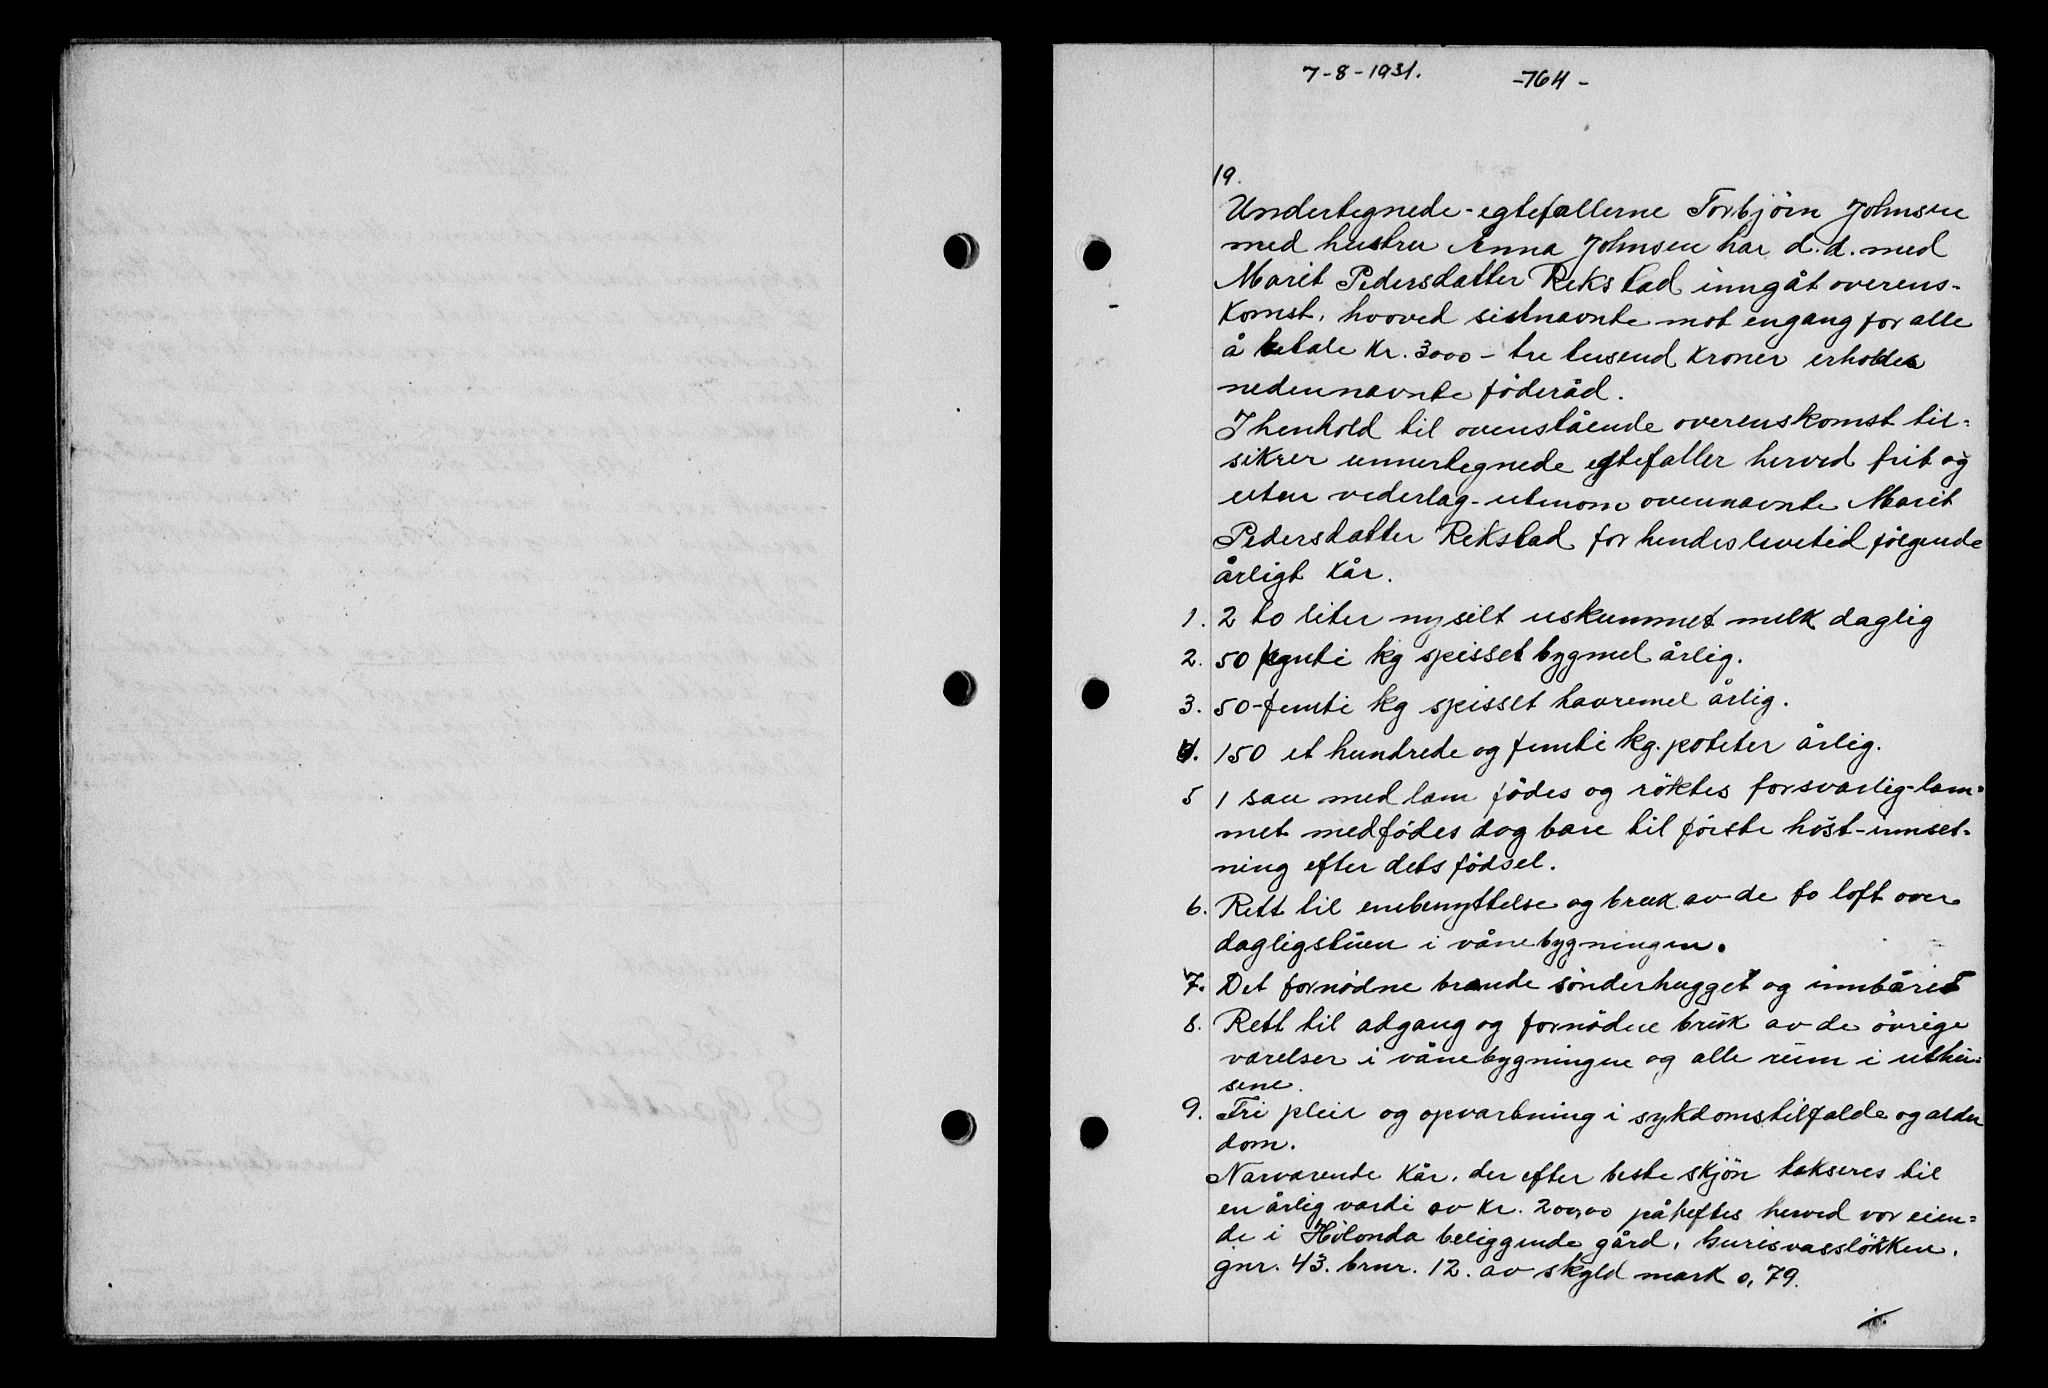 7-8-1931. -764-
19.
Undertegnede-egtefællerne Torbjörn Johnsen
med hustru Anna Johnsen har d.d. med
Marit Pedersdatter Rekstad inngåt overens-
komst, hvoved sistnævnte mot engang for alle
å betale Kr. 3000 - tre tusend kroner erholder
nedennævnte föderåd.
I henhold til ovenstående overenskomst til-
sikrer unnertegnede egtefæller herved frit og
uten vederlag-utenom ovennævnte Marit
Pedersdatter Rekstad for hendes levetid fölgende
årligt kår.
1. 2 to liter nysilt uskummet melk daglig
2. 50 femti kg spisset bygmel årlig.
3. 50-femti kg spisset havremel årlig.
4. 150 et hundrede og femti kg. poteter årlig.
5 1 sau med lam födes og röktes forsvarlig-lam-
met medfödes dog bare til förste höst-innset-
ning efter dets födsel.
6. Rett til enebenyttelse og bruk av de to loft over
dagligstuen i vånebygningen.
7. Det fornödne brænde sönderhugget og innbåret
8. Rett til adgang og fornödne bruk av de övrige
værelser i vånebygningen og alle rum i uthu-
sene.
9. Fri pleie og opvartning i sykdomstilfælde og alder
dom.
Nærværende kår, der efter beste skjön takseres til
en årlig værdi av kr. 200,00 påheftes herved vor eien-
de i Hölonda beliggende gård, Gurisvasslökken,
gnr. 43. brnr. 12. av skyld mark 0,79.